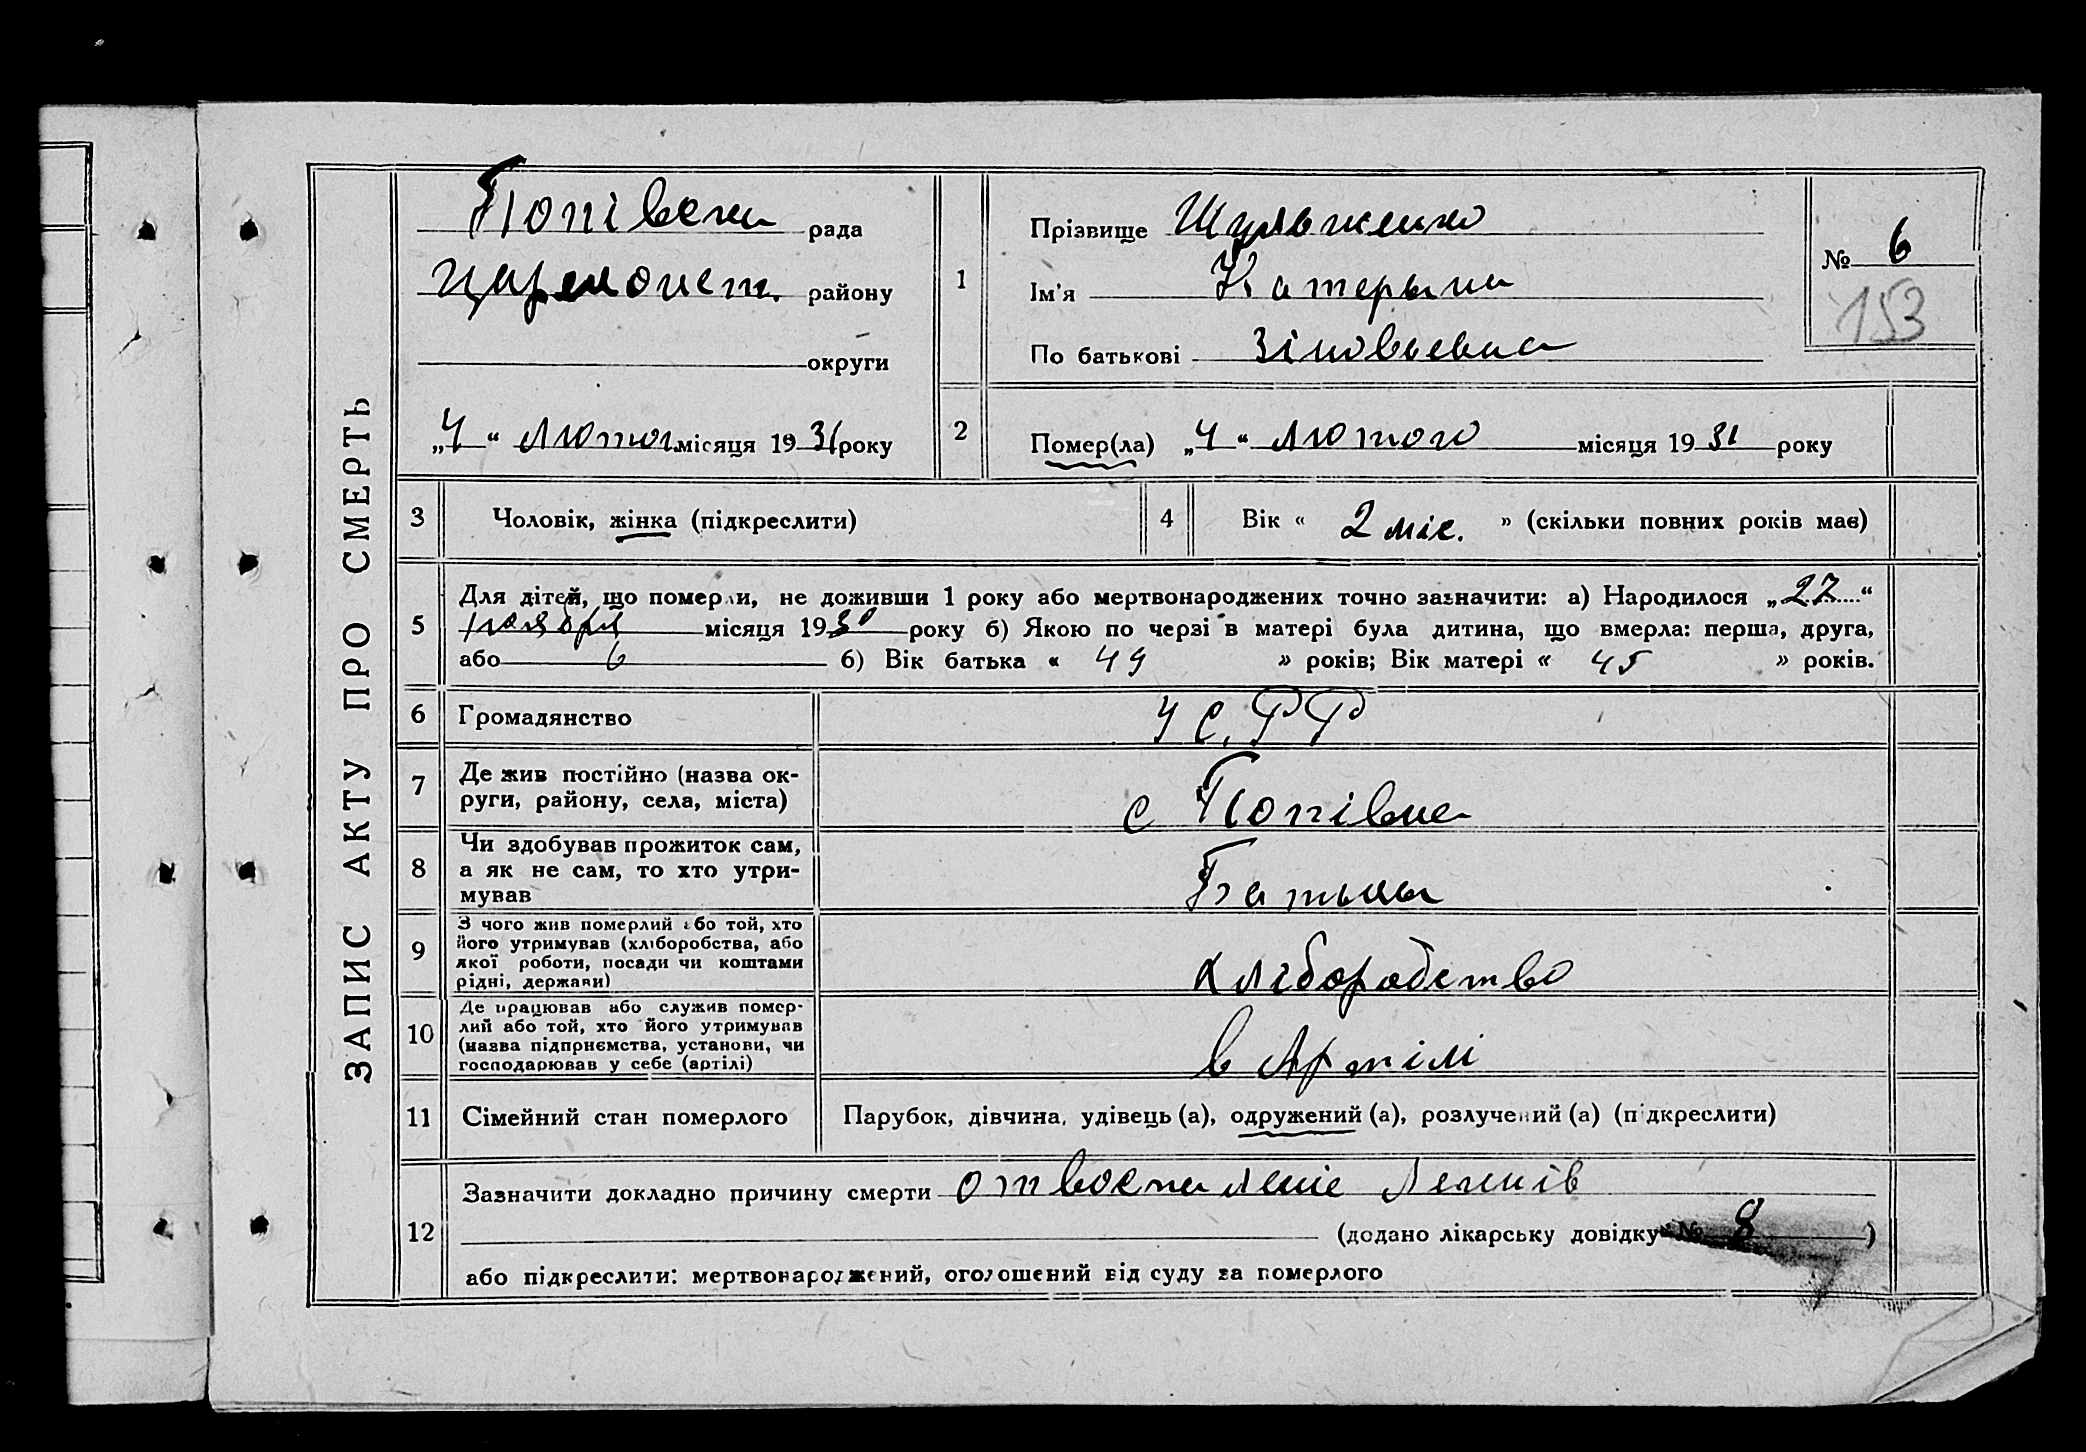 ЗАПИС АКТУ ПРО СМЕРТЬ
Попівська рада
Царичанськ. району
округи
„4“ лютого місяця 1931 року
1
Прізвище Шульженко
Ім'я Катерына
По батькові Зіновьевна
№ 6
153
2
Помер(ла) „4“ лютого місяця 1931 року
3 Чоловік, жінка (підкреслити)
4 Вік « 2 міс. » (скільки повних років має)
5
Для дітей, що померли, не доживши 1 року або мертвонароджених точно зазначити: а) Народилося „27“
ноября місяця 1930 року б) Якою по черзі в матері була дитина, що вмерла: перша, друга,
або 6 б) Вік батька « 49 » років; Вік матері « 45 » років.
6 Громадянство УС.РР
7 Де жив постійно (назва ок-
руги, району, села, міста)
с Попівка
8 Чи здобував прожиток сам,
а як не сам, то хто утри-
мував
Батько
9 З чого жив померлий або той, хто
його утримував (хліборобства, або
якої роботи, посади чи коштами
рідні, держави)
хліборобство
10 Де працював або служив помер-
лий або той, хто його утримував
(назва підприємства, установи, чи
господарював у себе (артілі)
в Артілі
11 Сімейний стан померлого Парубок, дівчина, удівець (а), одружений (а), розлучений (а) (підкреслити)
12
Зазначити докладно причину смерти от воспаленіе Легків
(додано лікарську довідку № 8)
або підкреслити: мертвонароджений, оголошений від суду за померлого